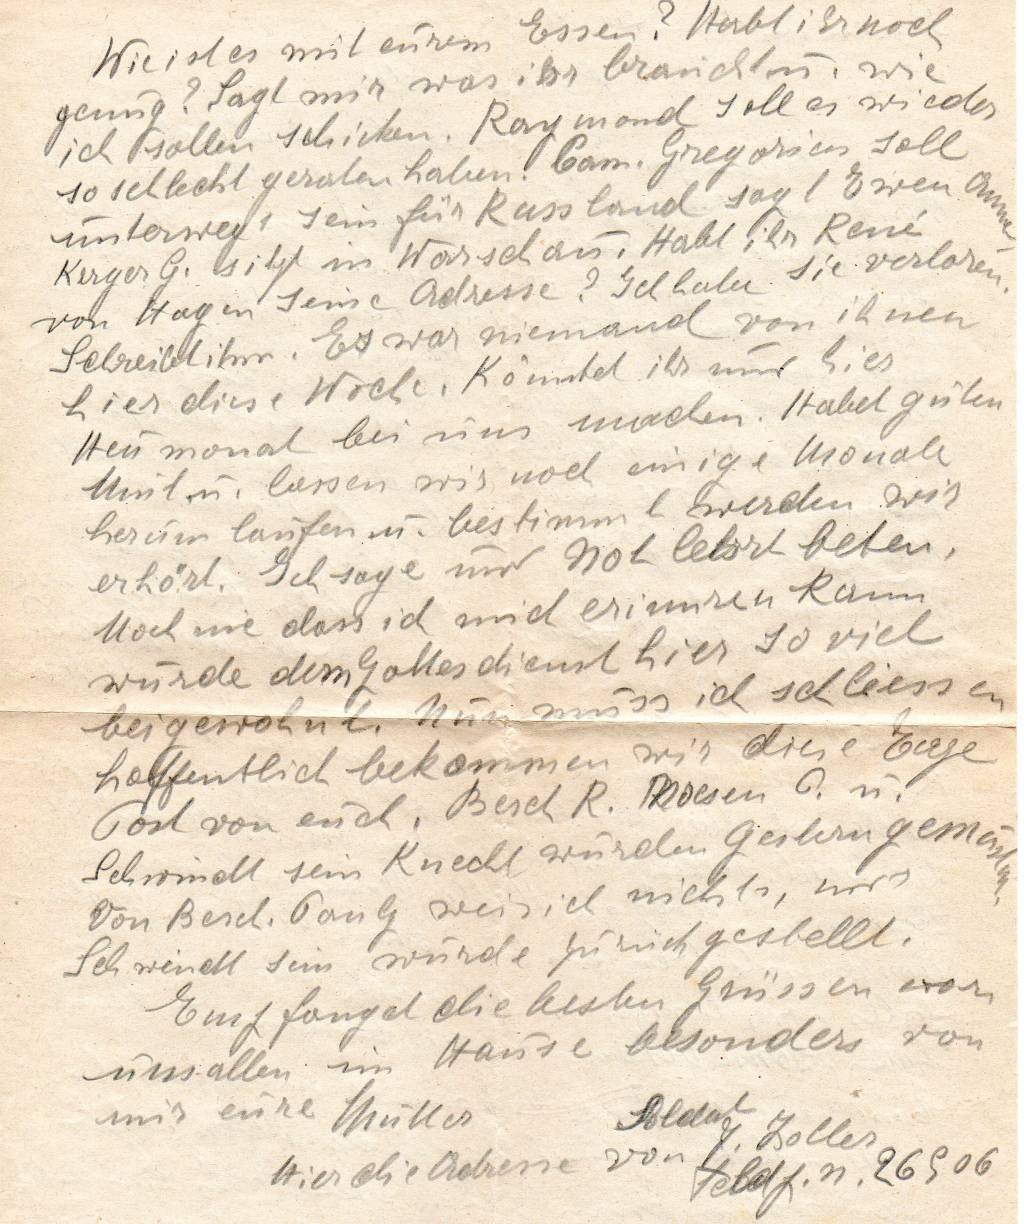 Wie ist es mit eurem Essen? Habt ihr noch
genug? Sagt mir was ihr braucht u. wie
ich sollen schicken. Raymond soll es wieder
so schlecht geraten haben. Cam. Gregorius soll
unterwegs sein für Russland sagt Ewen Anna,
Kerger G. sitzt in Warschau. Habt ihr René
von Hagen seine Adresse? Ich habe sie verloren.
Schreibt ihm. Es war niemand von ihnen
hier diese Woche. Könntet ihr nur hier
Heumonat bei uns machen. Habet guten
Mut u. lassen wir noch einige Monate
herum laufen u. bestimmt werden wir
erhört. Ich sage nur Not lehrt beten.
Noch nie dass ich mich erinnren kann
wurde dem Gottesdienst hier so viel
beigewohnt. Nun muss ich schliessen
hoffentlich bekommen wir diese Tage
Post von euch. Besch R. Thoesen P. u.
Schwindt sein Knecht wurden Gestern gemustert.
Von Besch. Pauly weis ich nichts, nur
Schwindt sein wurde zurückgestellt.
Empfanget die besten Grüssen von
uns allen im Hause besonders von
mir eure Mutter
Hier die Adresse von Soldat J. Zoller
Feldp. n. 26906